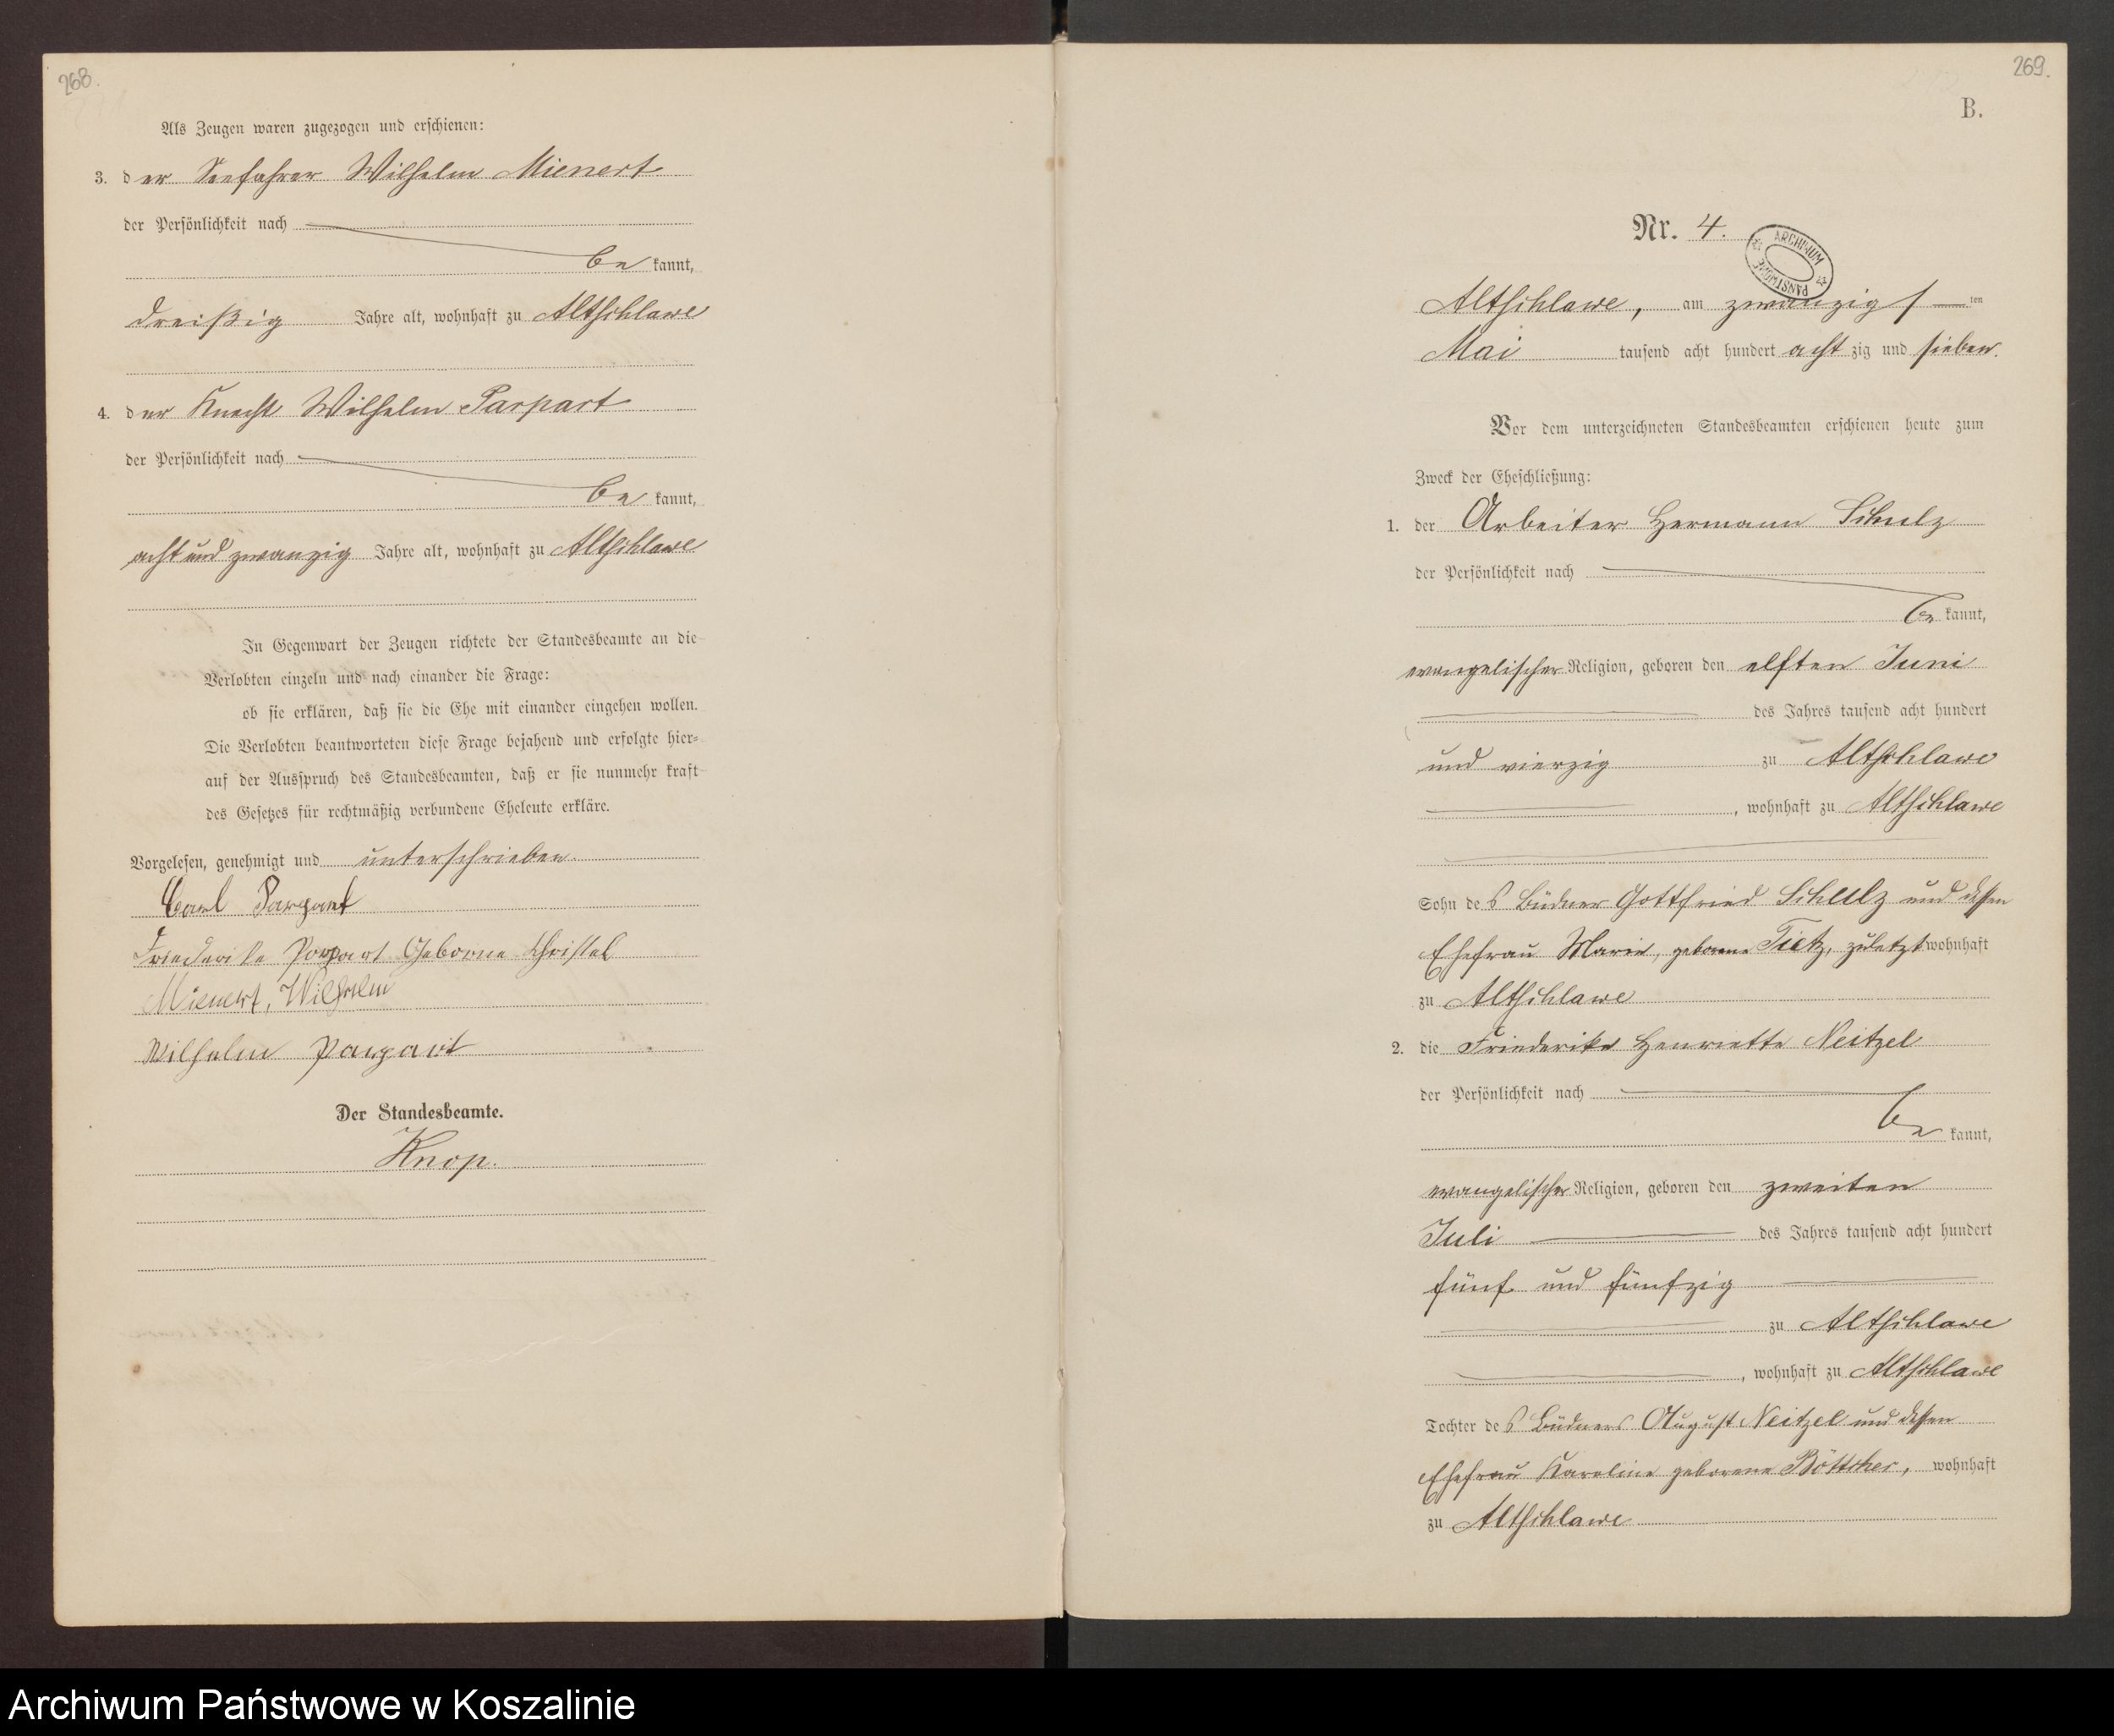 268.
Als Zeugen waren zugezogen und erschienen:
3. der Seefahrer Wilhelm Mienert
der Persönlichkeit nach
be kannt,
dreißig Jahre alt, wohnhaft zu Altschlawe
4. der Knecht Wilhelm Parpart
der Persönlichkeit nach
be kannt,
acht und zwanzig Jahre alt, wohnhaft zu Altschlawe
In Gegenwart der Zeugen richtete der Standesbeamte an die
Verlobten einzeln und nach einander die Frage:
ob sie erklären, daß sie die Ehe mit einander eingehen wollen.
Die Verlobten beantworteten diese Frage bejahend und erfolgte hier-
auf der Ausspruch des Standesbeamten, daß er sie nunmehr kraft
des Gesetzes für rechtmäßig verbundene Eheleute erkläre.
Vorgelesen, genehmigt und unterschrieben.
Carl Parpart
Friederike Parpart Geborne Christel
Mienert, Wilhelm
Wilhelm Parpart
Der Standesbeamte.
Knop.
269.
B.
Nr. 4.
ARCHIWUM PAŃSTWOWE
Altschlawe, am zwanzigs ten
Mai tausend acht hundert acht zig und sieben.
Vor dem unterzeichneten Standesbeamten erschienen heute zum
Zweck der Eheschließung:
1. der Arbeiter Hermann Schulz
der Persönlichkeit nach
be kannt,
evangelischer Religion, geboren den elften Juni
des Jahres tausend acht hundert
und vierzig zu Altschlawe
, wohnhaft zu Altschlawe
Sohn des Büdner Gottfried Schulz und dessen
Ehefrau Marie, geborene Tietz, zuletzt wohnhaft
zu Altschlawe
2. die Friederike Henriette Neitzel
der Persönlichkeit nach
be kannt,
evangelischer Religion, geboren den zweiten
Juli des Jahres tausend acht hundert
fünf und fünfzig
zu Altschlawe
, wohnhaft zu Altschlawe
Tochter des Büdners August Neitzel und dessen
Ehefrau Karoline geborene Böttcher, wohnhaft
zu Altschlawe
Archiwum Państwowe w Koszalinie